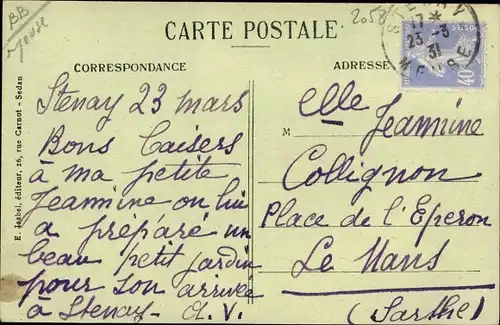 BB
Meuse
2058
CARTE POSTALE
CORRESPONDANCE
ADRESSE
17
23 - 3
31
40
Stenay 23 mars
Bons Baisers
à ma petite
Jeannine on lui
a préparé un
beau petit jardin
pour son arrivée
à Stenay - A.V.
Melle Jeannine
Collignon
Place de l'Eperon
Le Mans
(Sarthe)
E. Isabel, éditeur, 16, rue Carnot - Sedan